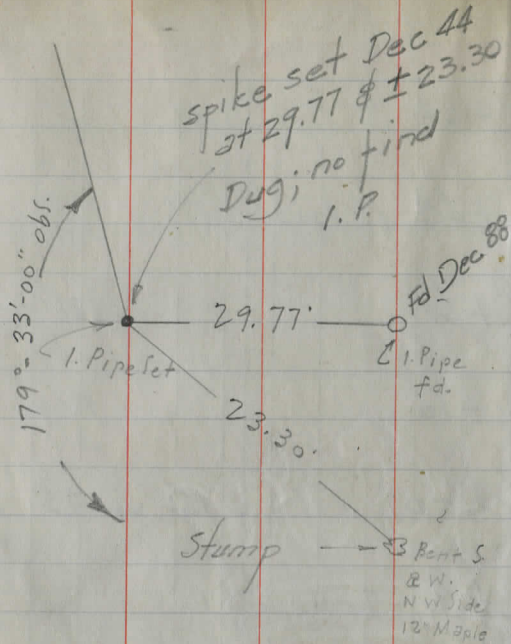 spike set Dec 44
at 29.77 & ± 23.30
Dug; no find
I. P.
Fd Dec 88
179°-33'-00" obs.
29.77'
I. Pipe Set
I. Pipe
fd.
23.30.
Stump
Bent S.
& W.
N W Side
12" Maple